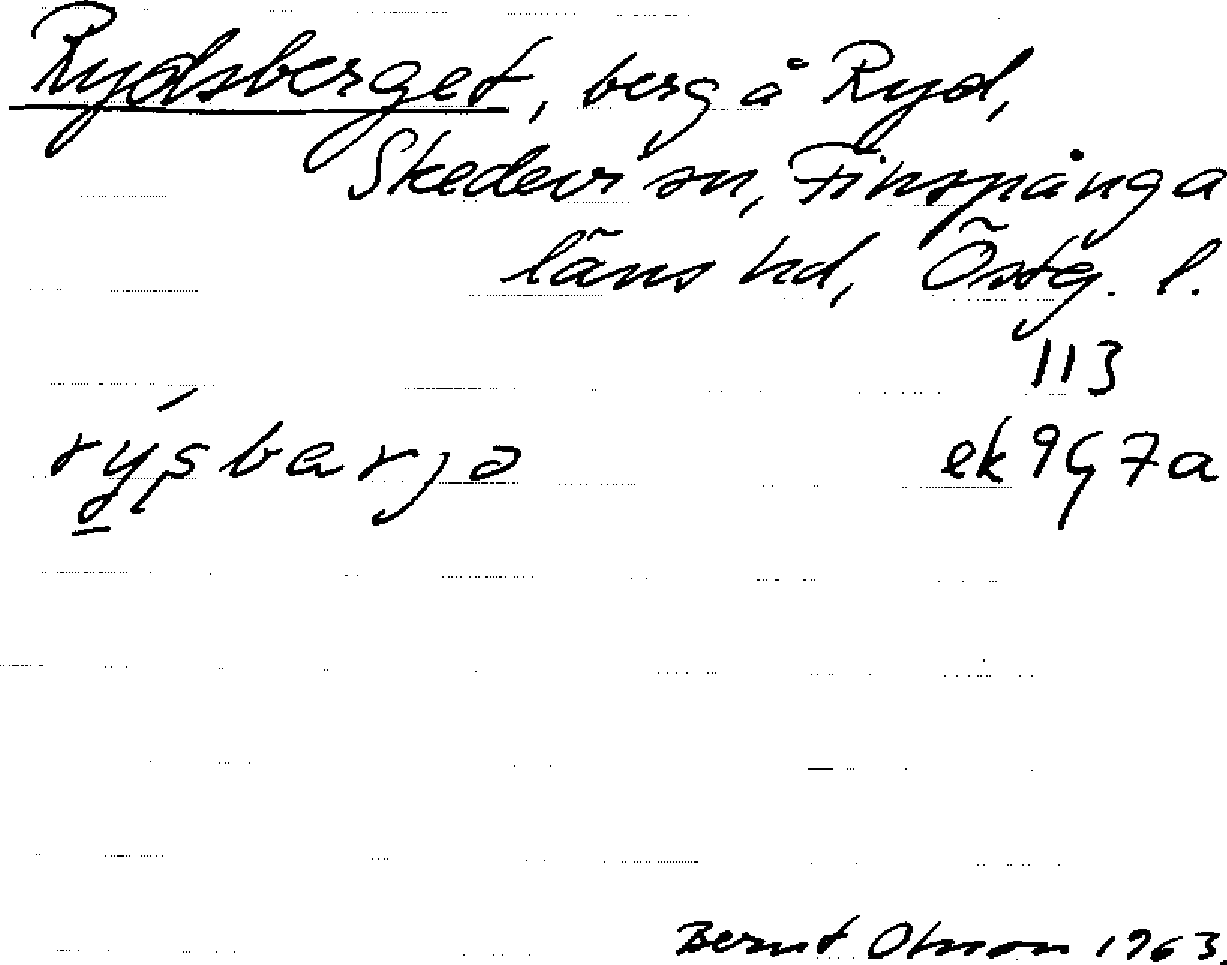 Rydsberget, berg å Ryd,
Skedevi sn, Finspånga
läns hd, Östg. l.
113
rýsbarjə ek 9G7a
Bernt Olsson 1963.